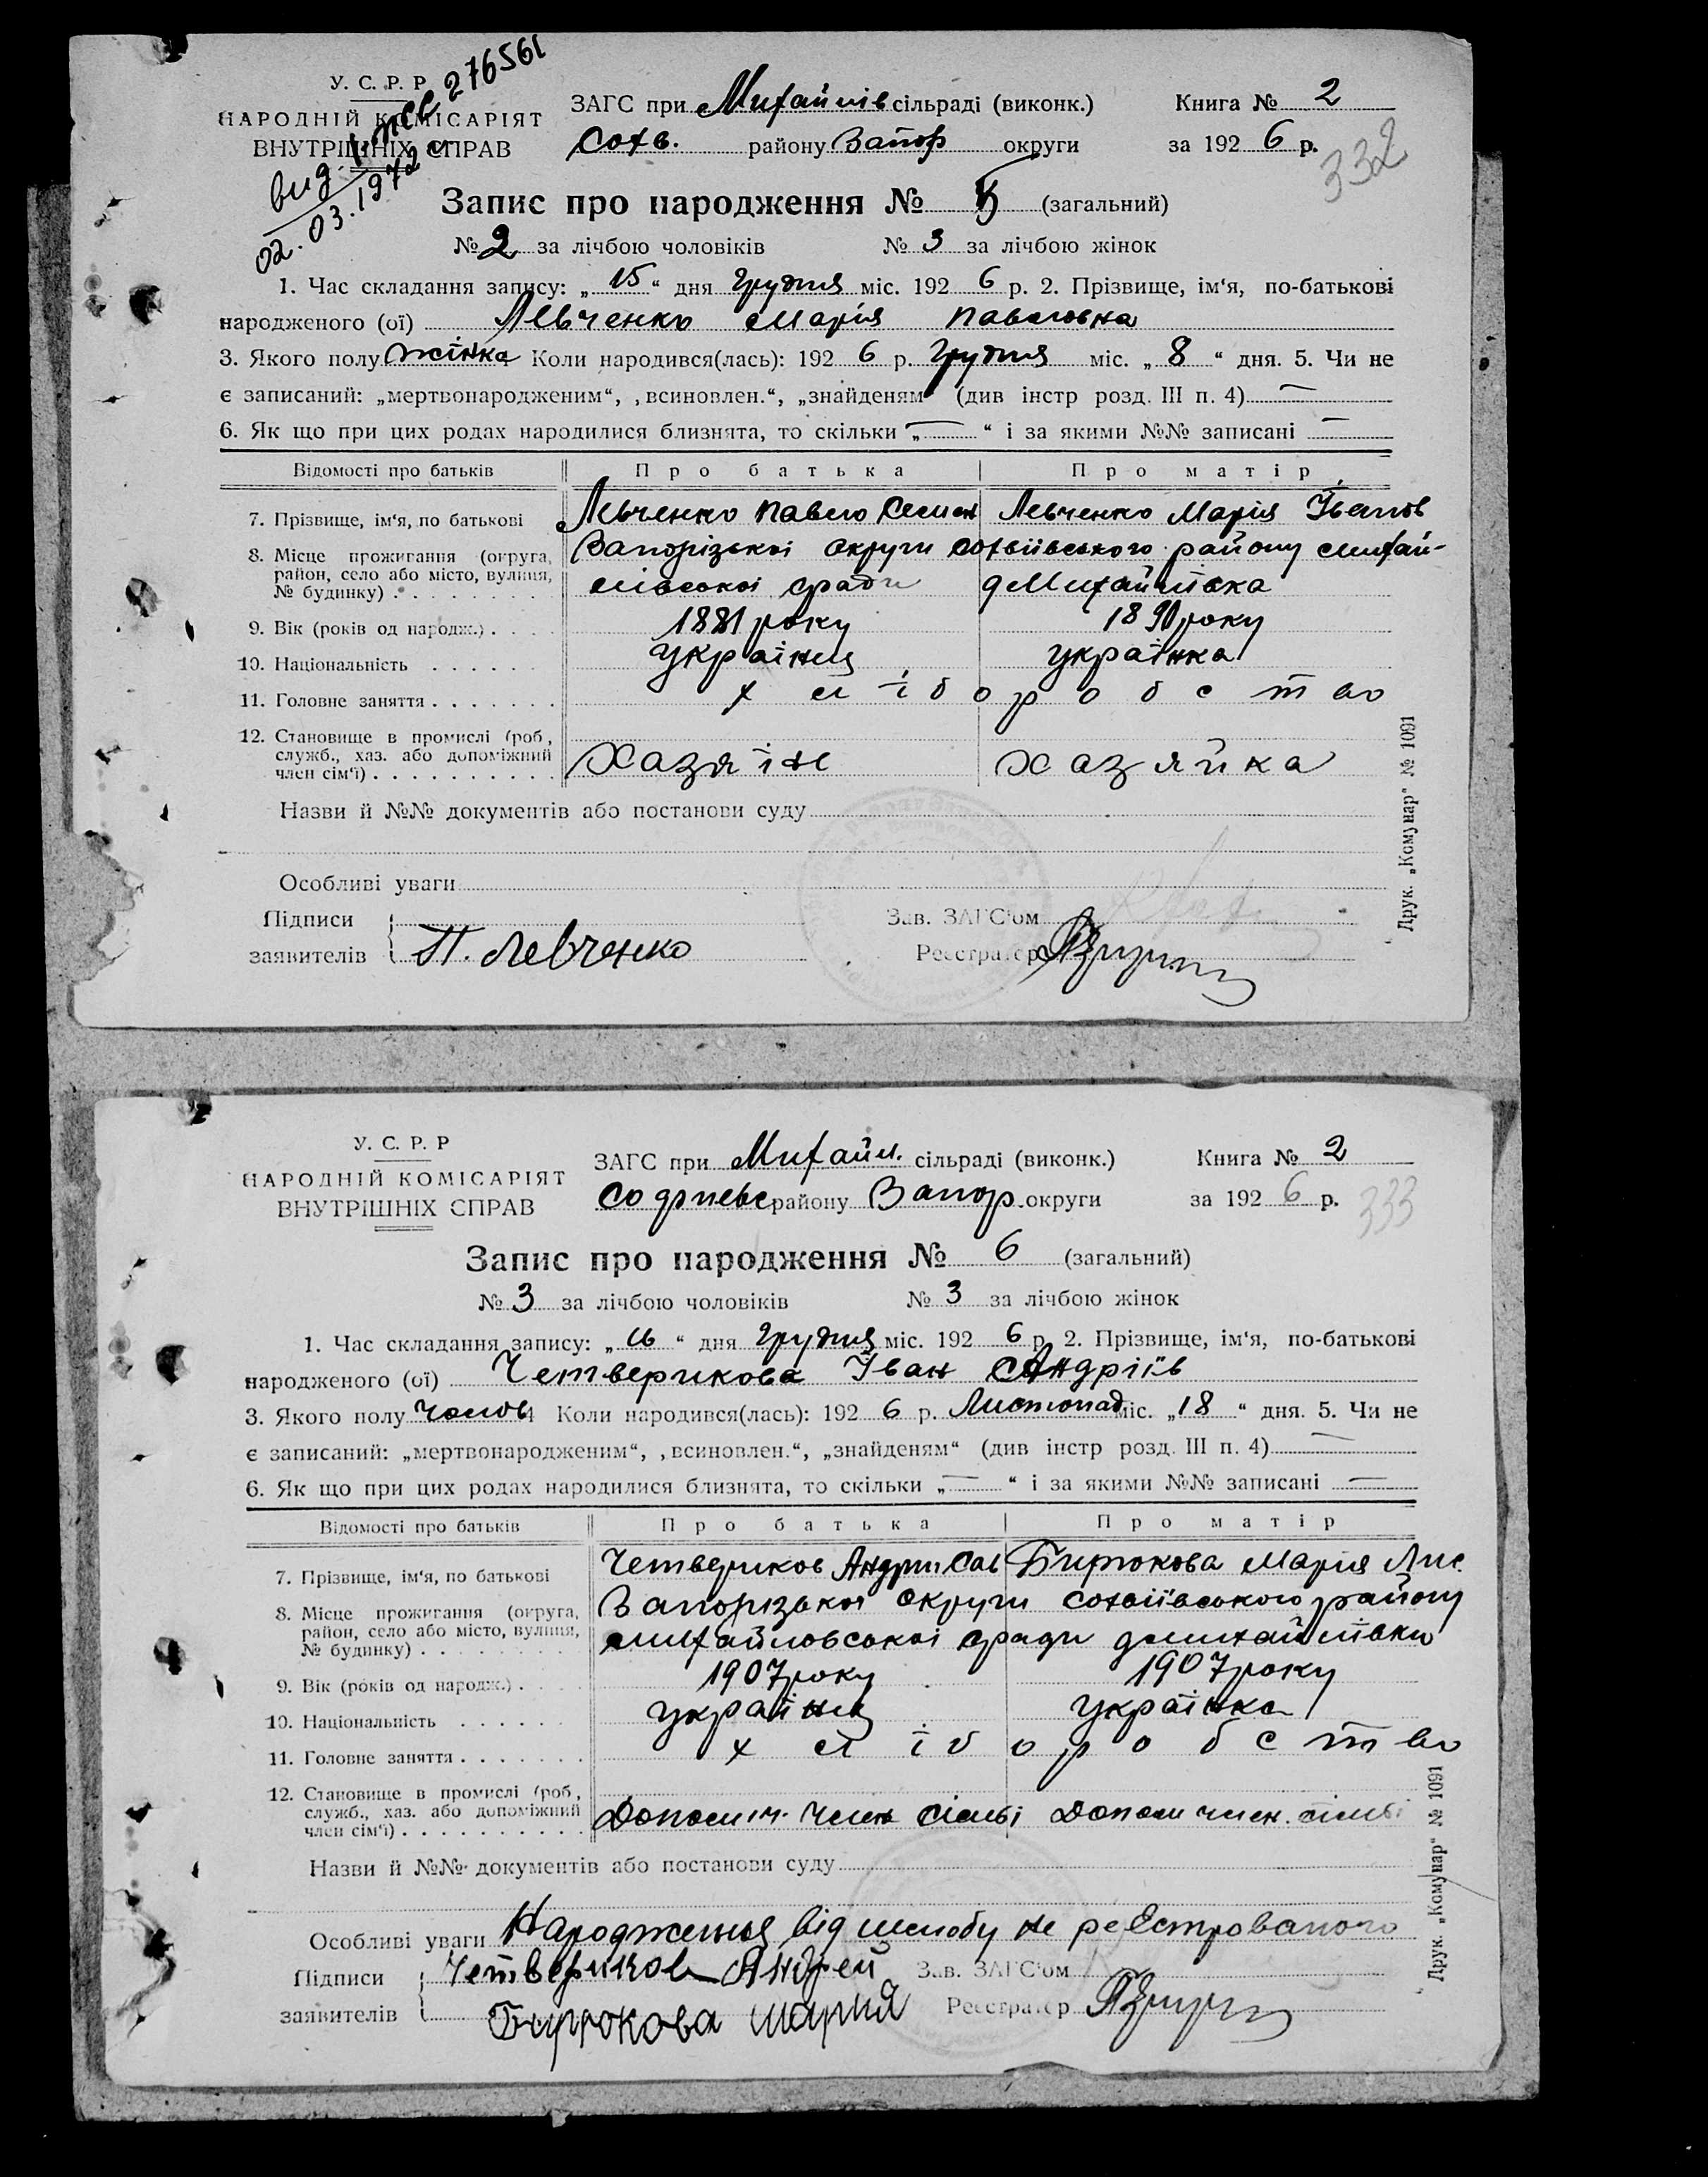 У. С. Р. Р
НАРОДНІЙ КОМІСАРІЯТ
ВНУТРІШНІХ СПРАВ
вид. 276561
02.03.1972
ЗАГС при Михайлів сільраді (виконк.) Книга № 2
Софв. району Запор округи за 192 6 р.
332
Запис про народження № 5 (загальний)
№ 2 за лічбою чоловіків № 3 за лічбою жінок
1. Час складання запису: „ 15 “ дня Грудня міс. 192 6 р. 2. Прізвище, ім‘я, по-батькові
народженого (ої) Левченко Марія Павловна
3. Якого полу жінка Коли народився(лась): 192 6 р. Грудня міс. „ 8 “ дня. 5. Чи не
є записаний: „мертвонародженим“, ‚всиновлен.“, „знайденям“ (див інстр розд. III п. 4) —
6. Як що при цих родах народилися близнята, то скільки „ — “ і за якими №№ записані —
Відомості про батьків Про батька Про матір
7. Прізвище, ім‘я, по батькові Левченко Павло Семен Левченко Марія Іванов
8. Місце прожигання (округа, район, село або місто, вулиця, № будинку) Запорізької округи Софвіївського району Михай-
лівської сради д Михайлівка
9. Вік (років од народж.) 1881 року 1890 року
10. Національність українец українка
11. Головне заняття хліборобство
12. Становище в промислі (роб, служб., хаз. або допоміжний член сім‘ї) Хазяїн хазяйка
Назви й №№ документів або постанови суду
Особливі уваги
Підписи заявителів П. Левченко
Зав. ЗАГС‘ом
Реєстратер
Друк. „Комунар“ № 1091
У. С. Р. Р
НАРОДНІЙ КОМІСАРІЯТ
ВНУТРІШНІХ СПРАВ
ЗАГС при Михайл. сільраді (виконк.) Книга № 2
району Запор. округи за 192 6 р.
333
Запис про народження № 6 (загальний)
№ 3 за лічбою чоловіків № 3 за лічбою жінок
1. Час складання запису: „ 16 “ дня Грудня міс. 192 6 р. 2. Прізвище, ім‘я, по-батькові
народженого (ої) Четверикова Іван Андріїв
3. Якого полу чолов Коли народився(лась): 192 6 р. Листопад міс. „ 18 “ дня. 5. Чи не
є записаний: „мертвонародженим“, ‚всиновлен.“, „знайденям“ (див інстр розд. III п. 4) —
6. Як що при цих родах народилися близнята, то скільки „ — “ і за якими №№ записані —
Відомості про батьків Про батька Про матір
7. Прізвище, ім‘я, по батькові Четвериков Андрій Сав Бирюкова Марія Лис.
8. Місце прожигання (округа, район, село або місто, вулиця, № будинку) Запорізької округи Софвіївського району
Михайловської сради д Михайлівки
9. Вік (років од народж.) 1907 року 1907 року
10. Національність українец українка
11. Головне заняття хліборобство
12. Становище в промислі (роб, служб., хаз. або допоміжний член сім‘ї) Допоміч. член сімьі Допом член. сімьі
Назви й №№ документів або постанови суду
Особливі уваги Народження від шлюбу не реєстрованого
Підписи Четвериков Андрей Зав. ЗАГС‘ом
заявителів Бирюкова Мария Реєстратер
Друк. „Комунар“ № 1091